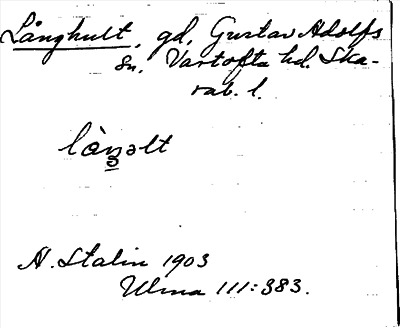 Långhult, gd, Gustav Adolfs
sn. Vartofta hd. Ska-
rab. l.
làŋəlt
A. Stalin 1903
Ulma 111:383.